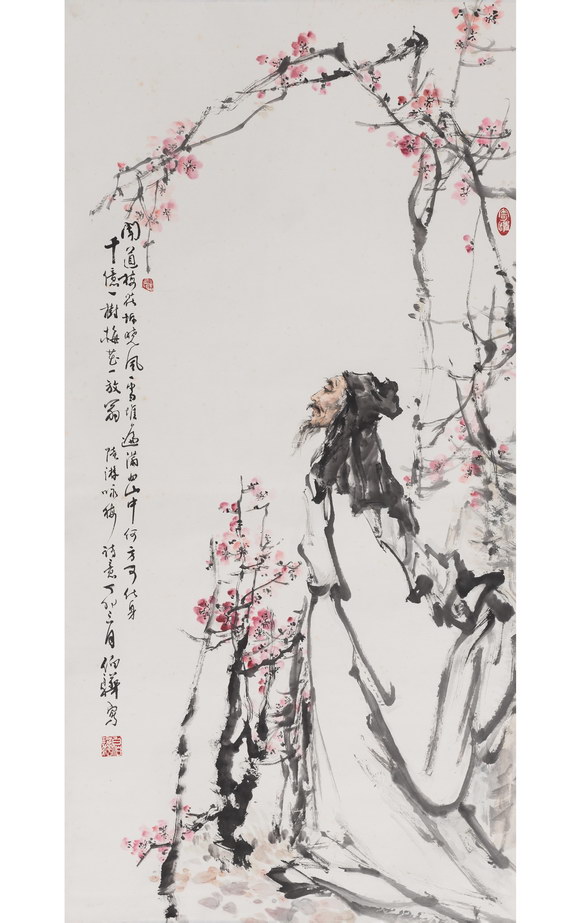 聞道梅花坼曉風雪堆遍滿四山中何方可化身
千億一樹梅花一放翁 陸游咏梅詩意丁卯三月伯驊寫